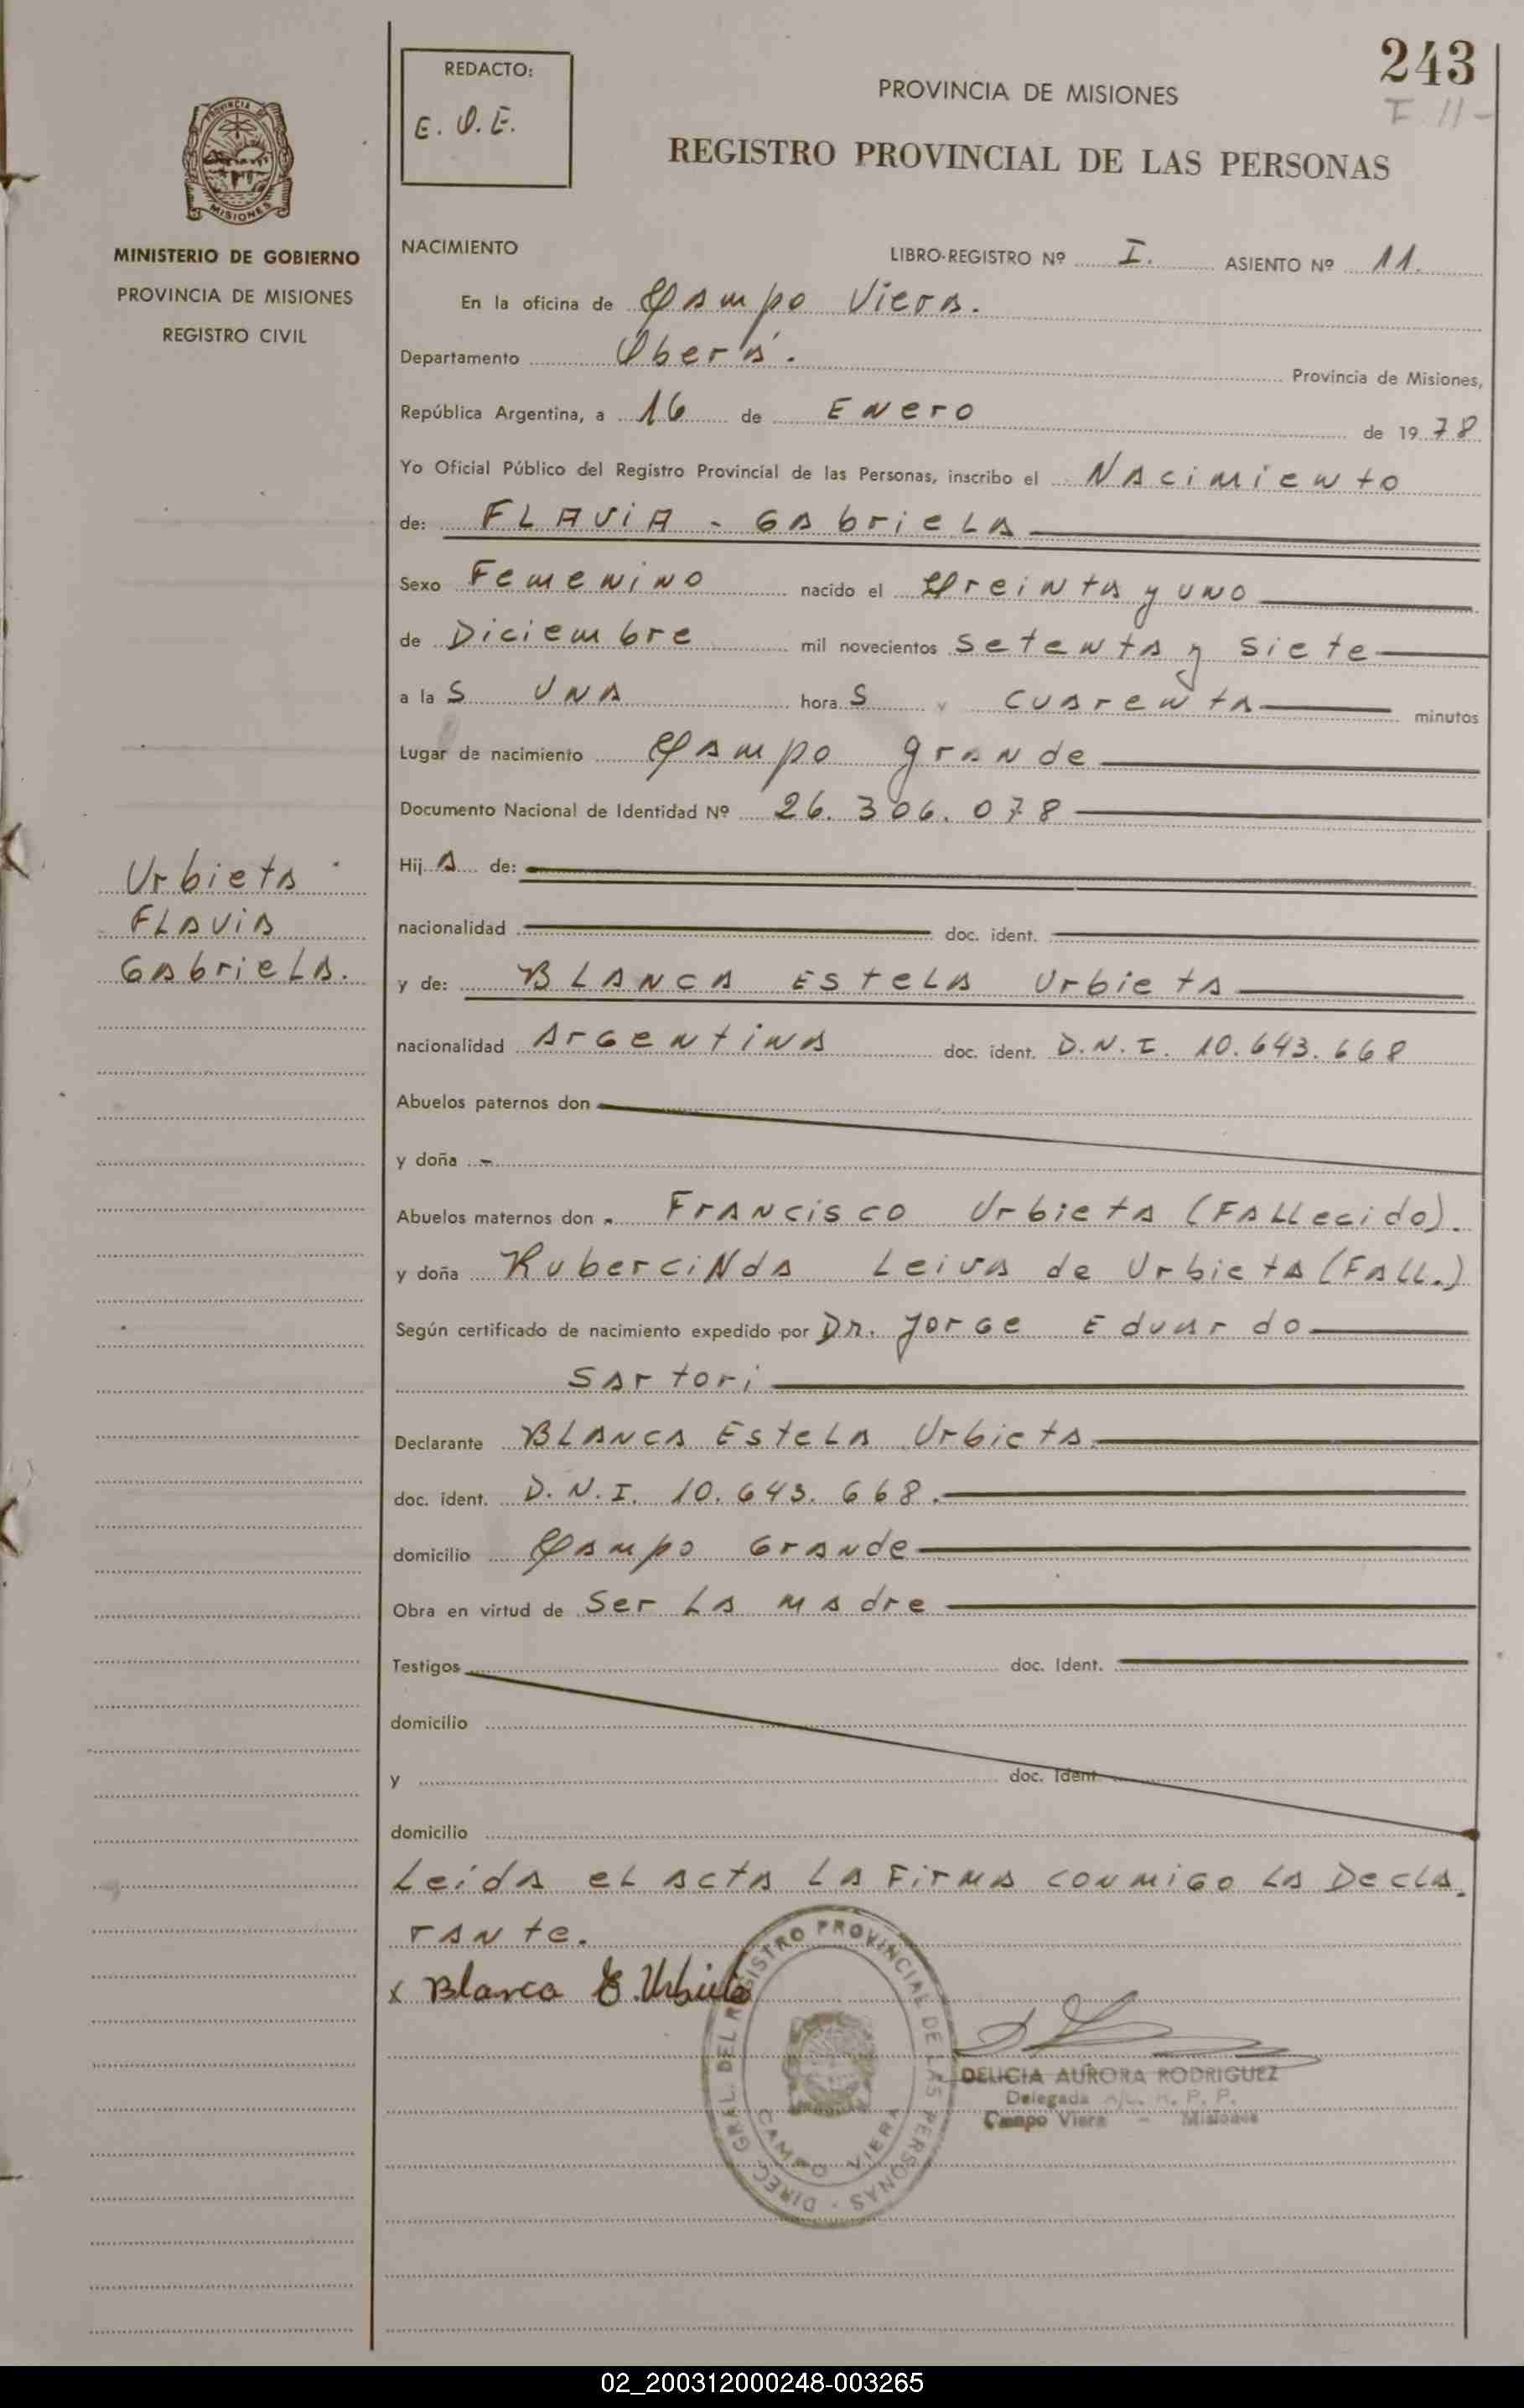 243
I 11-
REDACTO:
E. O. E.
PROVINCIA DE MISIONES
REGISTRO PROVINCIAL DE LAS PERSONAS
PROVINCIA DE
MISIONES
MINISTERIO DE GOBIERNO
PROVINCIA DE MISIONES
REGISTRO CIVIL
NACIMIENTO LIBRO-REGISTRO Nº I. ASIENTO Nº 11.
En la oficina de Campo Viera.
Departamento Oberá. Provincia de Misiones,
República Argentina, a 16 de Enero de 1978
Yo Oficial Público del Registro Provincial de las Personas, inscribo el Nacimiento
de: FLAViA - GAbrieLA
Sexo Femenino nacido el Treinta y uno
de Diciembre mil novecientos Setenta y Siete
a la S UNA hora S y cuarenta minutos
Lugar de nacimiento Campo grande
Documento Nacional de Identidad Nº 26.306.078
Hij A de:
nacionalidad doc. ident.
y de: BLANCA EsteLA Urbieta
nacionalidad Argentina doc. ident. D.N.I. 10.643.668
Abuelos paternos don
y doña -
Abuelos maternos don Francisco Urbieta (FALLecido).
y doña RuberciNda Leiva de Urbieta (FALL.)
Según certificado de nacimiento expedido por Dr. Jorge Eduardo
Sartori
Declarante BLANCA EsteLA Urbieta.
doc. ident. D.N.I. 10.643.668.
domicilio Campo Grande
Obra en virtud de Ser LA madre
Testigos doc. Ident.
domicilio
y doc. Ident.
domicilio
Leida eL acta LA Firma conmigo LA Decla
rante.
x Blanca E. Urbieta
Urbieta
FLAViA
GAbrieLA.
DIREC. GRAL. DEL REGISTRO PROVINCIAL DE LAS PERSONAS
CAMPO VIERA
DELICIA AURORA RODRIGUEZ
Delegada A/C. R. P. P.
Campo Viera - Misiones
02_200312000248-003265